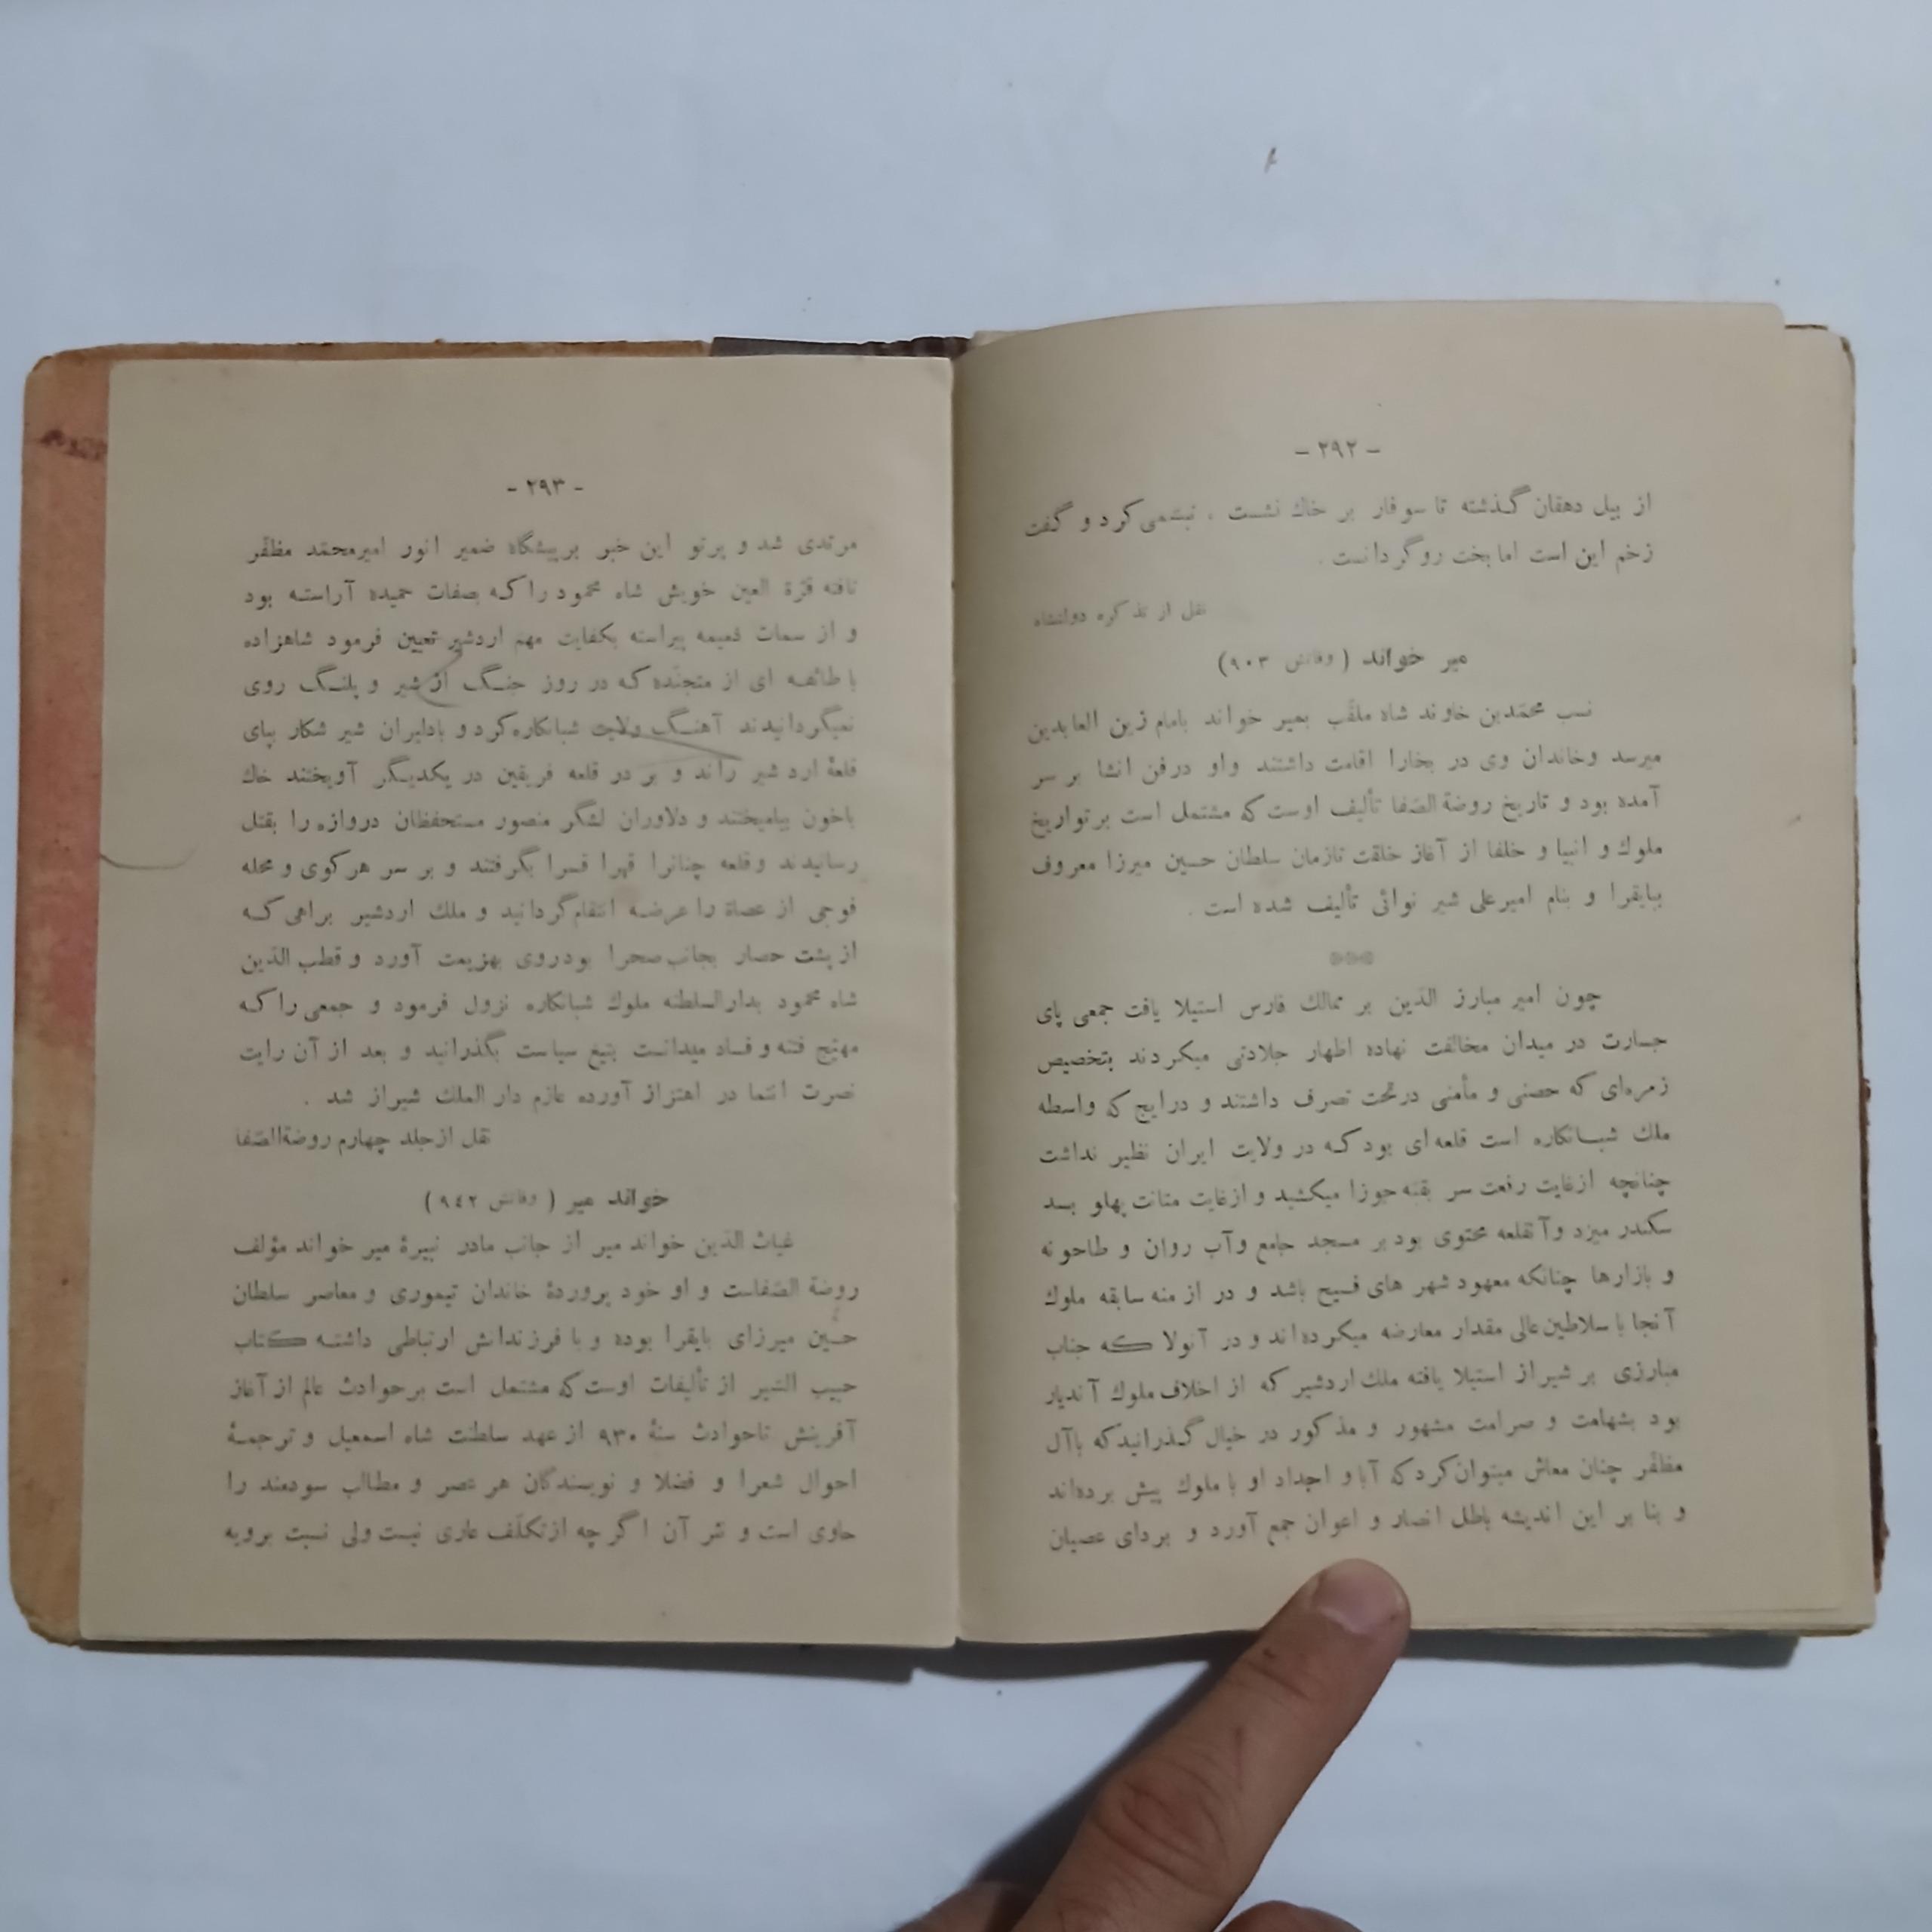 - ۲۹۲ -
از بیل دهقان گذشته تا سوفار بر خاك نشست ، تبسّمی کرد و گفت
زخم این است اما بخت روگردانست .
نقل از تذکره دولتشاه
میر خواند ( وفاتش ۹۰۳)
نسب محمّدبن خاوند شاه ملقّب بمیر خواند بامام زین العابدین
میرسد وخاندان وی در بخارا اقامت داشتند واو درفن انشا بر سر
آمده بود و تاریخ روضة الصّفا تألیف اوست که مشتمل است برتواریخ
ملوك و انبیا و خلفا از آغاز خلقت تازمان سلطان حسین میرزا معروف
ببایقرا و بنام امیرعلی شیر نوائی تألیف شده است .
چون امیر مبارز الدّین بر ممالك فارس استیلا یافت جمعی پای
جسارت در میدان مخالفت نهاده اظهار جلادتی میکردند بتخصیص
زمره‌ای که حصنی و مأمنی درتحت تصرف داشتند و درایج که واسطه
ملك شبانکاره است قلعه‌ای بود که در ولایت ایران نظیر نداشت
چنانچه ازغایت رفعت سر بقبّه جوزا میکشید و ازغایت متانت پهلو بسد
سکندر میزد وآنقلعه محتوی بود بر مسجد جامع وآب روان و طاحونه
و بازارها چنانکه معهود شهر های فسیح باشد و در ازمنه سابقه ملوك
آنجا با سلاطین عالی مقدار معارضه میکرده‌اند و در آنولا که جناب
مبارزی بر شیراز استیلا یافته ملك اردشیر که از اخلاف ملوك آندیار
بود بشهامت و صرامت مشهور و مذکور در خیال گذرانید که باآل
مظفّر چنان معاش میتوان کرد که آبا و اجداد او با ملوك پیش برده‌اند
و بنا بر این اندیشه باطل انصار و اعوان جمع آورد و بردای عصیان
- ۲۹۳ -
مرتدی شد و پرتو این خبر برپیشگاه ضمیر انور امیرمحمّد مظفّر
تافته قرّة العین خویش شاه محمود را که بصفات حمیده آراسته بود
و از سمات ذمیمه پیراسته بکفایت مهم اردشیر تعیین فرمود شاهزاده
با طائفه ای از متجنّده که در روز جنگ از شیر و پلنگ روی
نمیگردانیدند آهنگ ولایت شبانکاره کرد و بادلیران شیر شکار بپای
قلعهٔ ارد شیر راند و بر در قلعه فریقین در یکدیگر آویختند خاك
باخون بیامیختند و دلاوران لشگر منصور مستحفظان دروازه را بقتل
رسانیدند وقلعه چنانرا قهرا قسرا بگرفتند و بر سر هر کوی و محله
فوجی از عصاة را عرضه انتقام گردانید و ملك اردشیر براهی که
از پشت حصار بجانب صحرا بود روی بهزیمت آورد و قطب الدّین
شاه محمود بدارالسلطنه ملوك شبانکاره نزول فرمود و جمعی را که
مهیّج فتنه و فساد میدانست بتیغ سیاست بگذرانید و بعد از آن رایت
نصرت انتما در اهتزاز آورده عازم دار الملك شیراز شد .
نقل از جلد چهارم روضةالصّفا
خواند میر ( وفاتش ۹٤۲)
غیاث الدّین خواند میر از جانب مادر نبیرهٔ میر خواند مؤلف
روضة الصّفاست و او خود پروردهٔ خاندان تیموری و معاصر سلطان
حسین میرزای بایقرا بوده و با فرزندانش ارتباطی داشته کتاب
حبیب السّیر از تألیفات اوست که مشتمل است برحوادث عالم از آغاز
آفرینش تاحوادث سنهٔ ۹۳۰ از عهد سلطنت شاه اسمعیل و ترجمهٔ
احوال شعرا و فضلا و نویسندگان هر عصر و مطالب سودمند را
حاوی است و نثر آن اگر چه از تکلّف عاری نیست ولی نسبت برویه